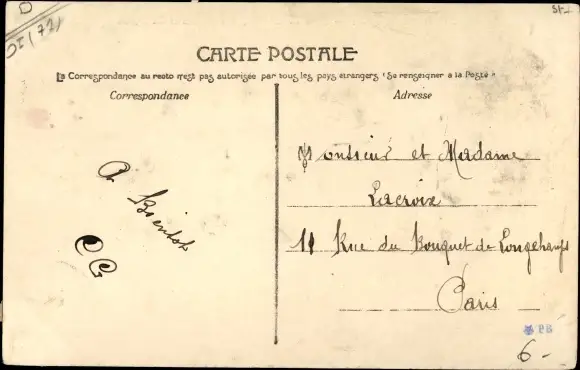 DI (71)
CARTE POSTALE
La Correspondance au recto n'est pas autorisée par tous les pays étrangers (Se renseigner à la Poste)
Correspondance
Adresse
A Bientôt
Monsieur et Madame
Lacroix
11 Rue du Bouquet de Longchamps
Paris
PB
6-